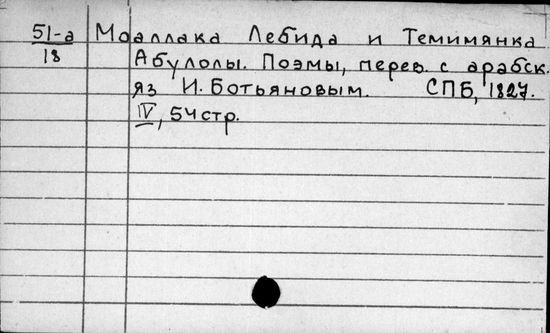 51-а Моаллака Лебида и Темимянка
18 Абулолы. Поэмы, перев. с арабск.
яз И. Ботьяновым. СПБ, 1827.
IV, 54 стр.